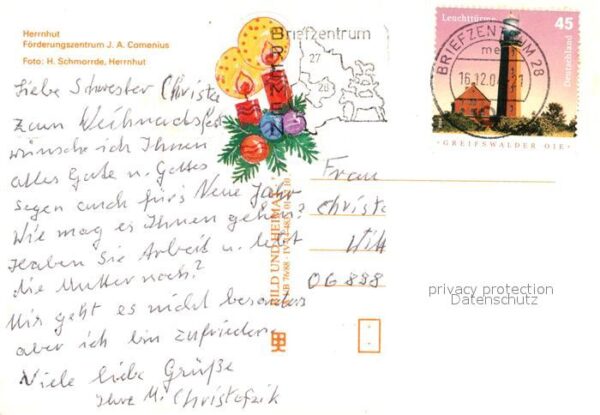 Herrnhut
Förderungszentrum J. A. Comenius
Foto: H. Schmorrde, Herrnhut
Liebe Schwester Christa
zum Weihnachtsfest
wünsche ich Ihnen
alles Gute u. Gottes
Segen auch für's Neue Jahr
Wie mag es Ihnen gehen?
Haben Sie Arbeit u. lebt
die Mutter noch?
Mir geht es nicht besonders
aber ich bin zufrieden
Viele liebe Grüße
Ihre M. Christofzik
Briefzentrum
BREMEN
27
28
BRIEFZENTRUM 28
16.12.04
Leuchttürme
45
Deutschland
GREIFSWALDER OIE
Frau
Christa
Witt
OG 888
BILD UND HEIMAT
privacy protection
Datenschutz